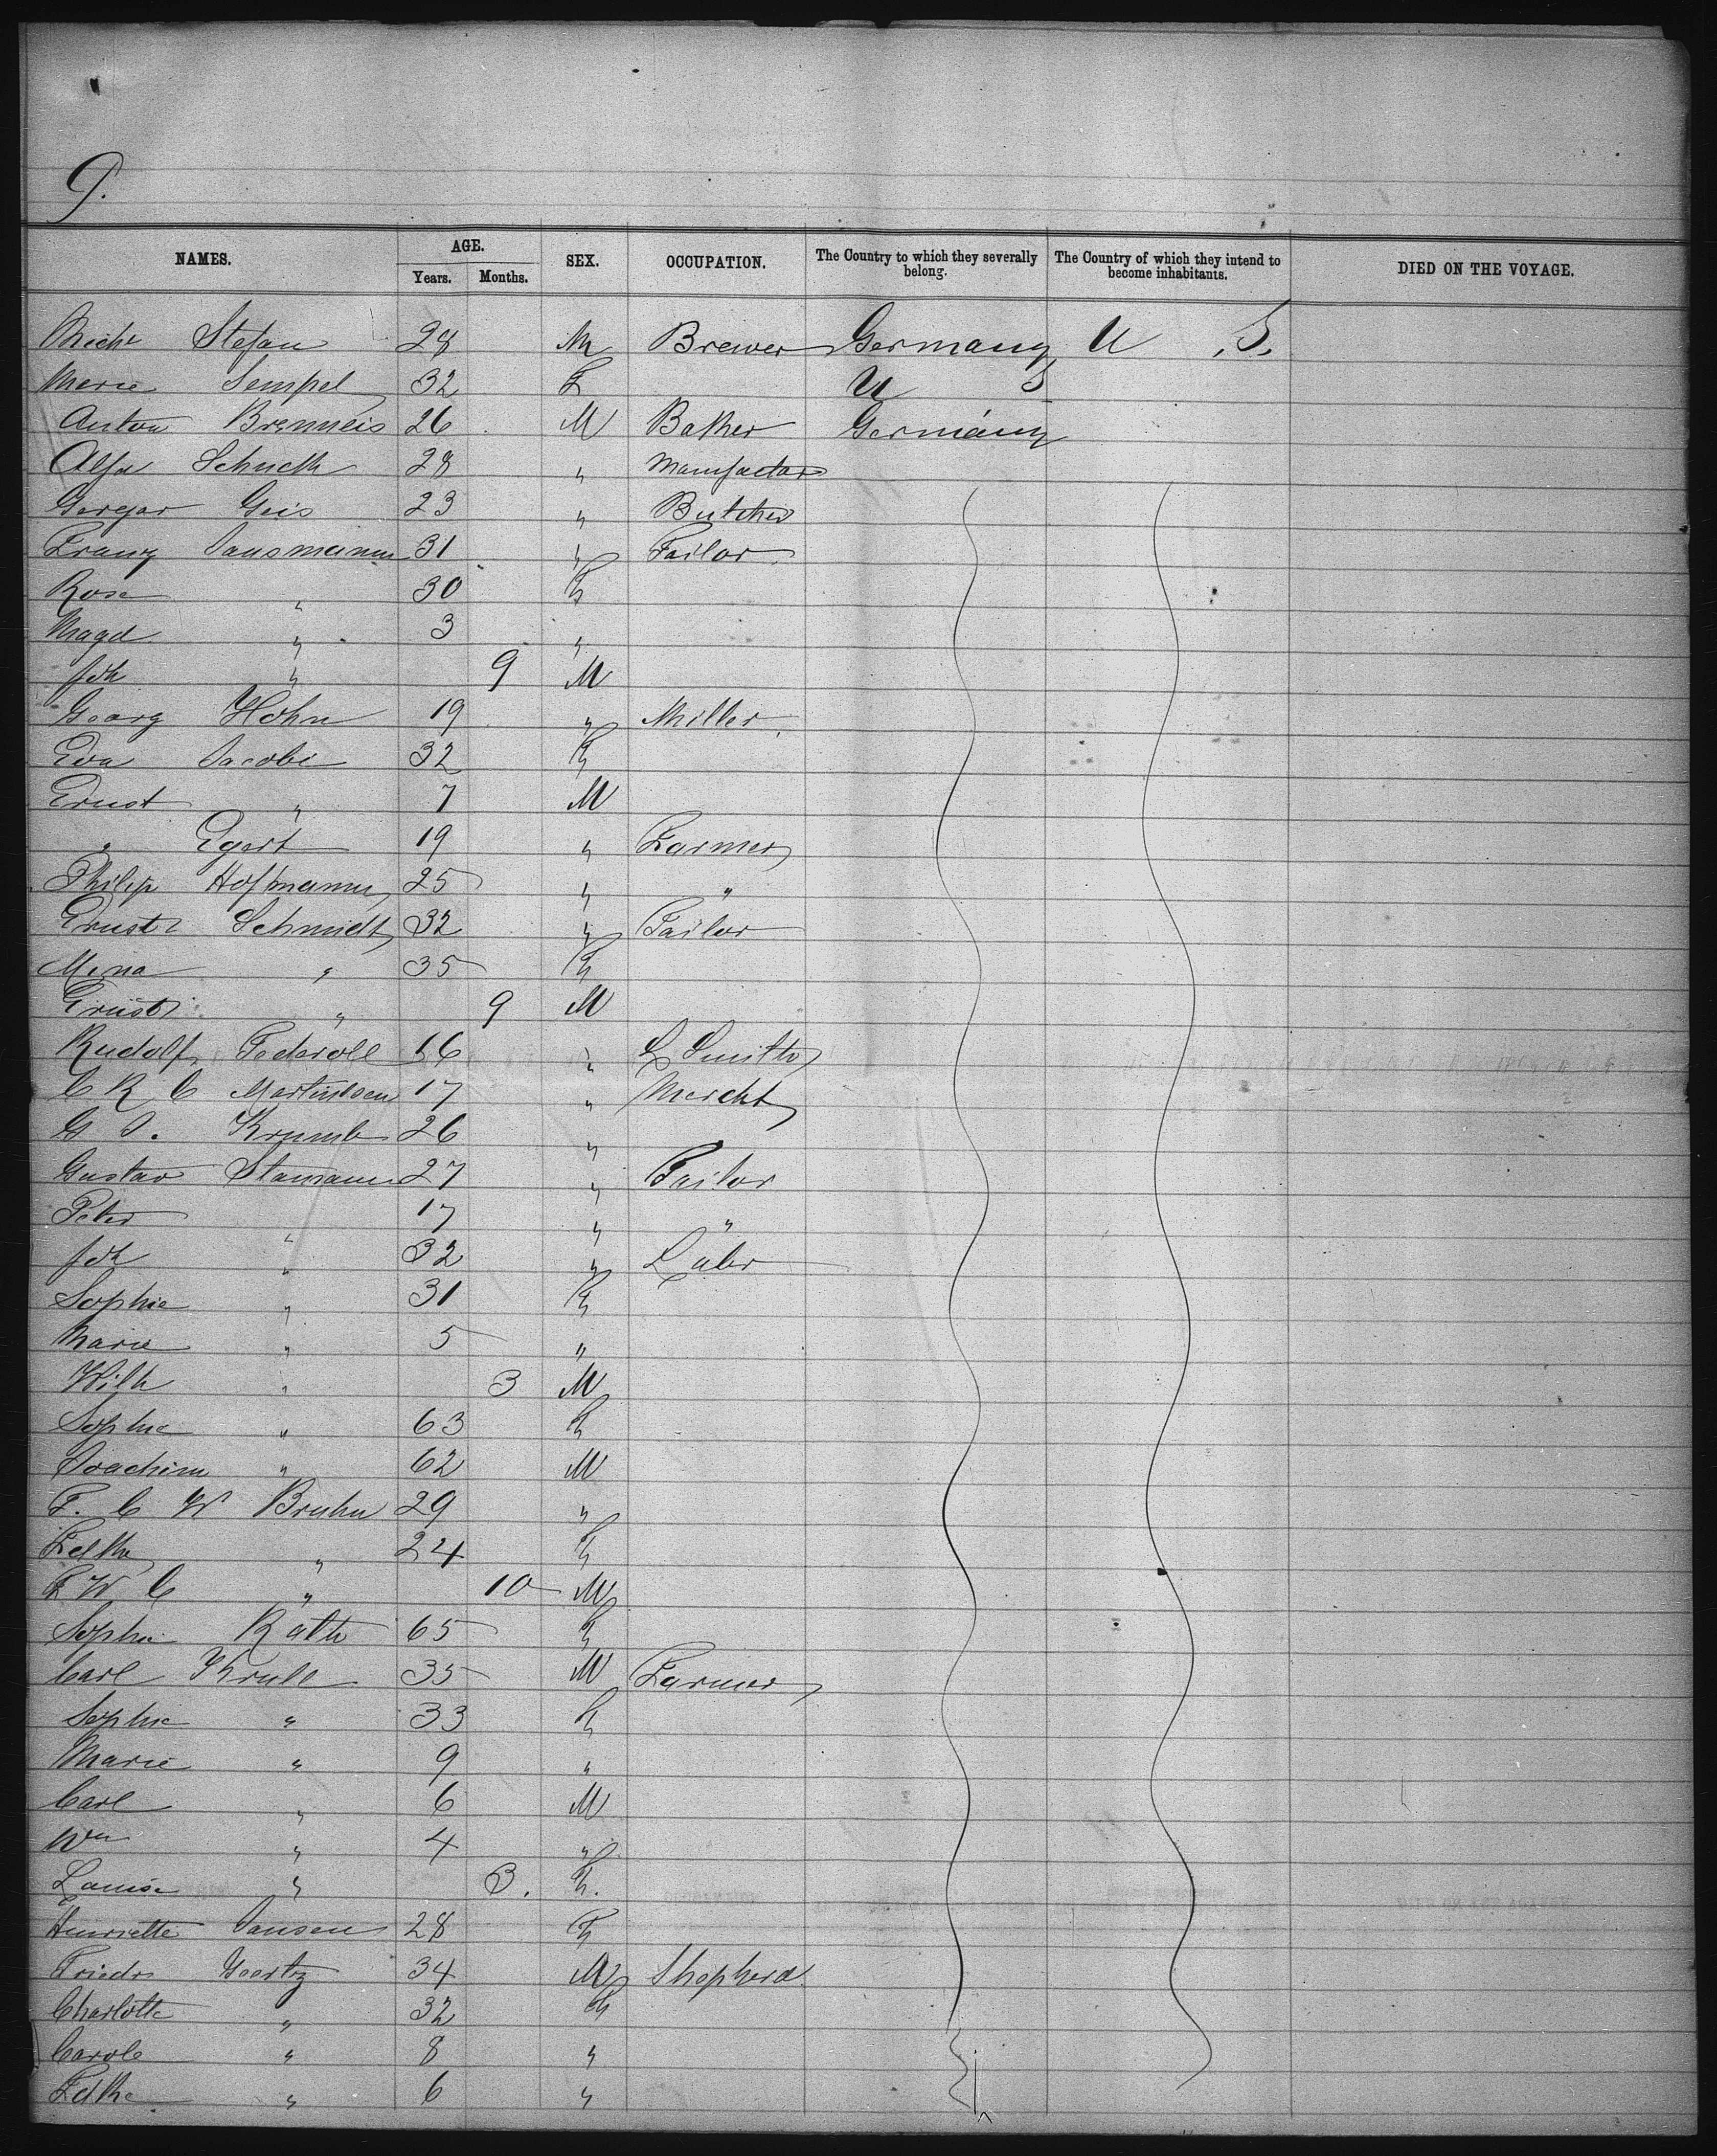 9.
NAMES. AGE. Years. Months. SEX. OCCUPATION. The Country to which they severally belong. The Country of which they intend to become inhabitants. DIED ON THE VOYAGE.
Michl Stefan 28 M Brewer Germany U.S.
Marie Sempel 32 F U S
Anton Brenneis 26 M Baker Germany
Schuch 28 "
Geis 23 " Butcher
Franz Jansmann 31 " Tailor
Rosa " 30 F
Magd " 3 "
Joh " 9 M
Georg Höhn 19 " Miller
Eva Jacobi 32 F
Ernst " 7 M
" Egert 19 " Farmer
Philip Hofmann 25 " "
Ernst Schmidt 32 " Tailor
Mina " 35 F
Ernst " 9 M
Rudolf Federoll 16 " L Smith
C R C Martinsen 17 " Mercht
G J. Krumb 26 "
Gustav Stamann 27 " Tailor
Peter " 17 " "
Joh " 32 " Labr
Sophie " 31 F
Marie " 5 "
Wilh " 3 M
Sophie " 63 F
Joachim " 62 M
F. C W Bruhn 29 "
" 24 F
F W C " 10 M
Sophie Rath 65 F
Carl Krull 35 M Farmer
Sophie " 33 F
Marie " 9 "
Carl " 6 M
Wm " 4 "
Louise " 3. F.
Henriette Jansen 28 F
Friedr Goertz 34 M Shepherd
Charlotte " 32 F
Carole " 8 "
" 6 "